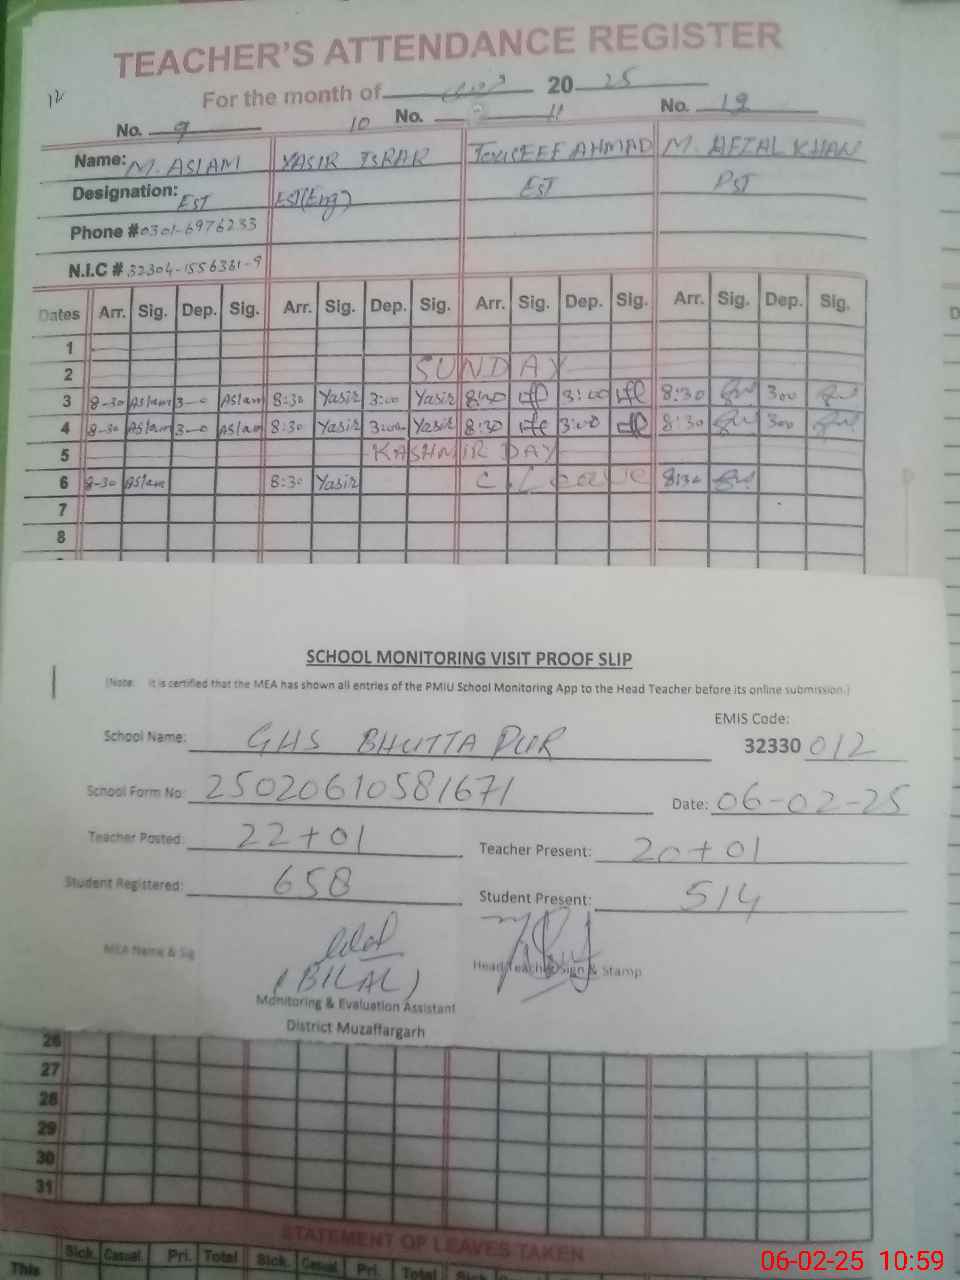 TEACHER'S ATTENDANCE REGISTER
12
For the month of 20 25
No. 9 10 No. 11 No. 12
Name: M. ASLAM YASIR ISRAR AHMAD M. AFZAL KHAN
Designation: EST EST(Eng) EST PST
Phone # 0301-6976233
N.I.C # 32304-1556361-9
Dates Arr. Sig. Dep. Sig. Arr. Sig. Dep. Sig. Arr. Sig. Dep. Sig. Arr. Sig. Dep. Sig.
1
2 SUNDAY
3 8-30 Aslam 3-0 Aslam 8:30 Yasir 3:00 Yasir 8:30 3:00 8:30 300
4 8-30 Aslam 3-0 Aslam 8:30 Yasir 3:00 Yasir 8:30 3:00 8:30 300
5 KASHMIR DAY
6 8-30 Aslam 8:30 Yasir C. Leave 8:30
7
8
SCHOOL MONITORING VISIT PROOF SLIP
(Note: It is certified that the MEA has shown all entries of the PMIU School Monitoring App to the Head Teacher before its online submission.)
EMIS Code:
School Name: GHS BHUTTA PUR 32330 012
School Form No: 25020610581671 Date: 06-02-25
Teacher Posted: 22+01 Teacher Present: 20+01
Student Registered: 658 Student Present: 514
MEA Name & Sig Head Teacher Sign & Stamp
(BILAL)
Monitoring & Evaluation Assistant
District Muzaffargarh
26
27
28
29
30
31
STATEMENT OF LEAVES TAKEN
Sick. Casual. Pri. Total Sick. Casual. Pri. Total Sick.
This
06-02-25 10:59